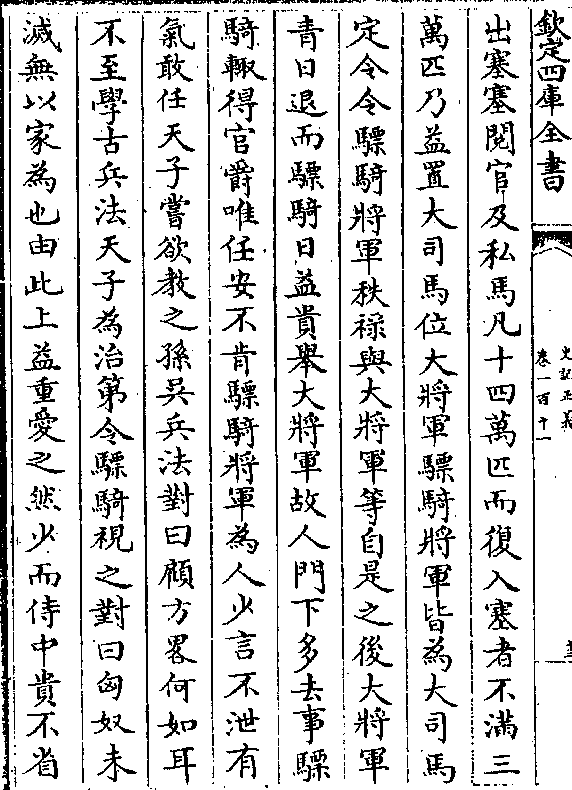 欽定四庫全書
史記正義
卷一百十一
出塞塞閱官及私馬凡十四萬匹而復入塞者不滿三
萬匹乃益置大司馬位大將軍驃騎將軍皆為大司馬
定令令驃騎將軍秩祿與大將軍等自是之後大將軍
青日退而驃騎日益貴舉大將軍故人門下多去事驃
騎輙得官爵唯任安不肯驃騎將軍為人少言不泄有
氣敢任天子嘗欲教之孫吳兵法對曰顧方畧何如耳
不至學古兵法天子為治第令驃騎視之對曰匈奴未
滅無以家為也由此上益重愛之然少而侍中貴不省